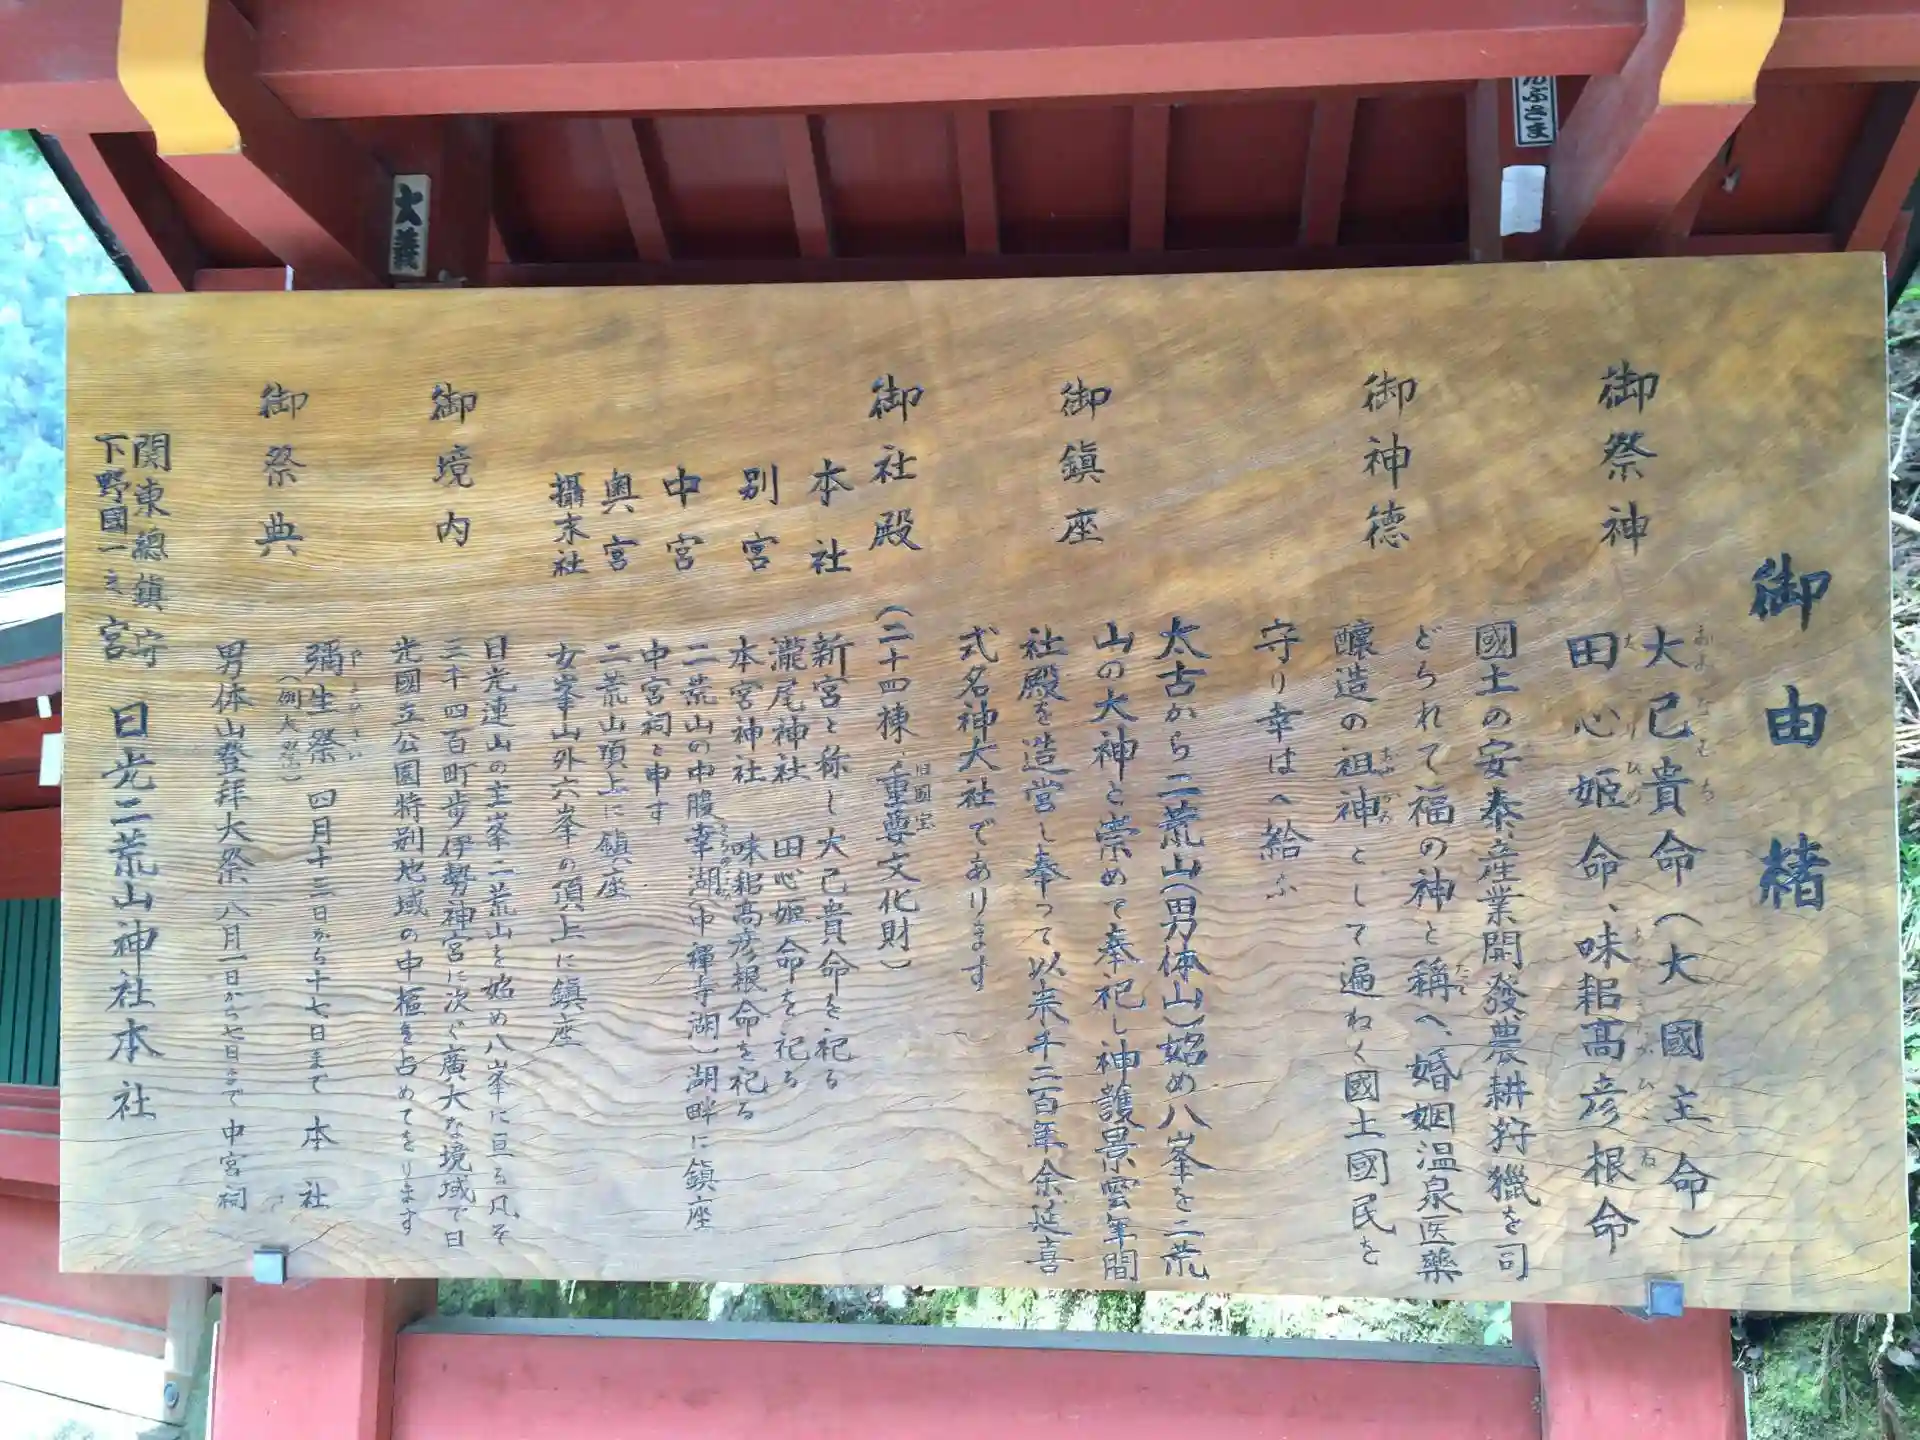 御由緒
御祭神
大己貴命（大國主命）
おおなむち
田心姫命、味耜高彦根命
國土の安泰、産業開發農耕狩獵を司
どられて福の神と稱へ、婚姻温泉医藥
醸造の祖神として遍ねく國土國民を
守り幸はへ給ふ
御神徳
御鎭座
太古から二荒山（男体山）始め八峯を二荒
山の大神と崇めて奉祀し神護景雲年間
社殿を造営し奉って以来千二百年余延喜
式名神大社であります
御社殿
（二十四棟、重要文化財）
旧國宝
本社
新宮と称し大己貴命を祀る
別宮
瀧尾神社 田心姫命を祀る
本宮神社 味耜高彦根命を祀る
中宮
二荒山の中腹幸湖（中禪寺湖）湖畔に鎭座
中宮祠と申す
奥宮
二荒山頂上に鎭座
攝末社
女峯山外六峯の頂上に鎭座
御境内
日光連山の主峯二荒山を始め八峯に亘る凡そ
三千四百町歩伊勢神宮に次ぐ廣大な境域で日
光國立公園特別地域の中樞を占めてをります
御祭典
彌生祭 四月十三日から十七日まで 本社
（例大祭）
男体山登拜大祭 八月一日から七日まで 中宮祠
関東總鎭守
下野國一之宮
日光二荒山神社本社
大義
ぶさま